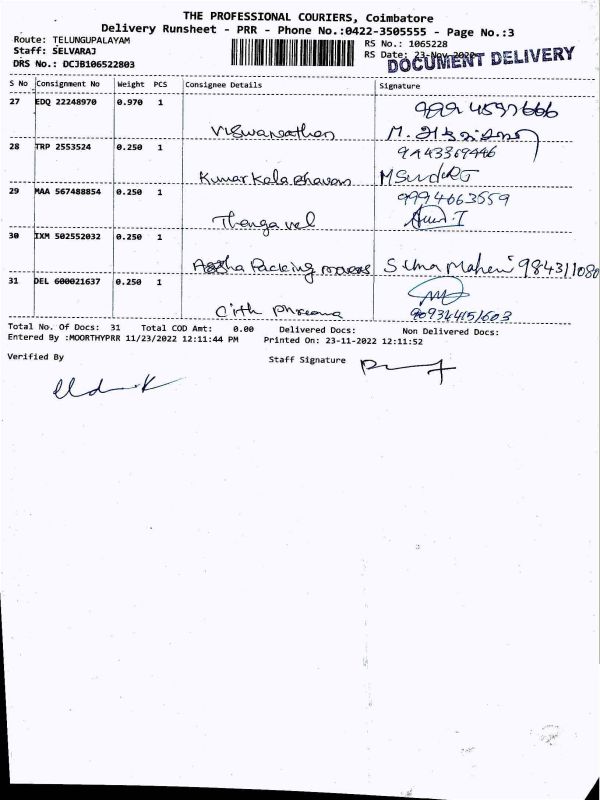 THE PROFESSIONAL COURIERS, Coimbatore
Delivery Runsheet - PRR - Phone No.:0422-3505555 - Page No.:3
Route: TELUNGUPALAYAM
Staff: SELVARAJ
DRS No.: DCJB106522803
RS No.: 1065228
RS Date: 23-Nov-2022
DOCUMENT DELIVERY
S No Consignment No Weight PCS Consignee Details Signature
27 EDQ 22248970 0.970 1
Viswanathan
28 TRP 2553524 0.250 1 9443369446
Kumar Kala Bhavan
29 MAA 567488854 0.250 1 9994663559
Thangavel
30 IXM 502552032 0.250 1
Packing 984311080
31 DEL 600021637 0.250 1
Total No. Of Docs: 31 Total COD Amt: 0.00 Delivered Docs: Non Delivered Docs:
Entered By :MOORTHYPRR 11/23/2022 12:11:44 PM Printed On: 23-11-2022 12:11:52
Verified By Staff Signature